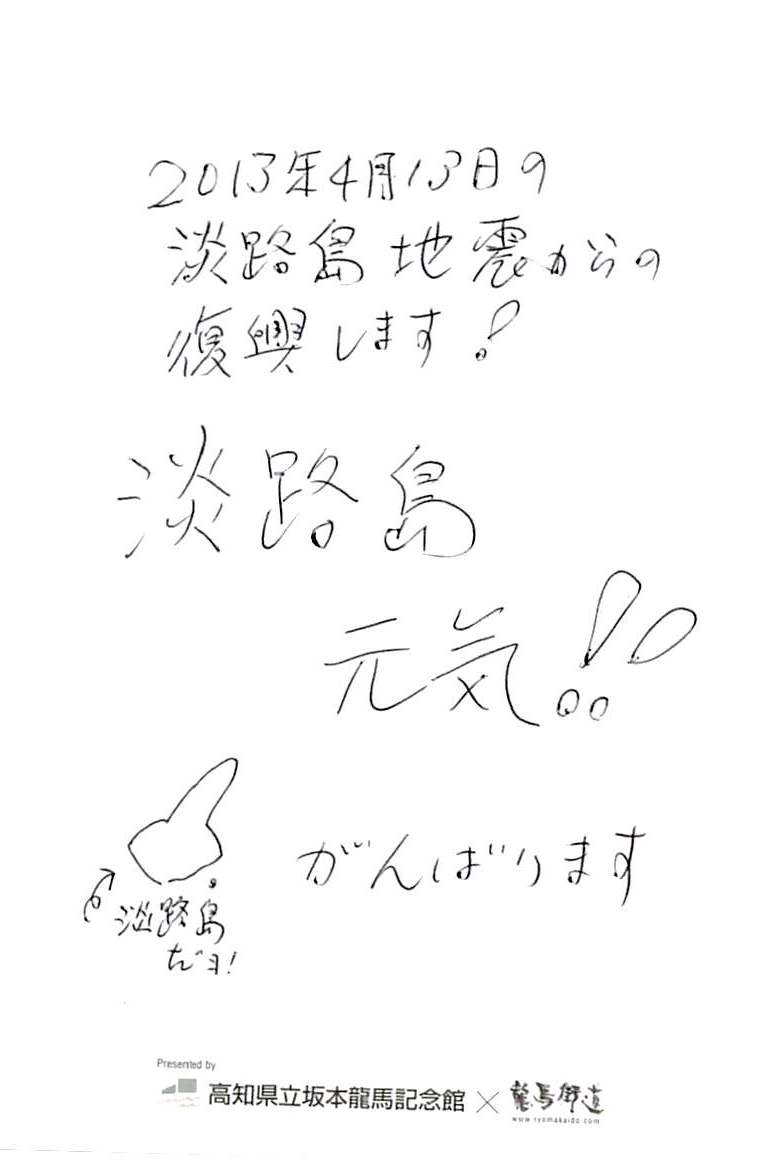 2013年4月13日の
淡路島地震からの
復興します!
淡路島
元気!!
がんばります
淡路島
だヨ!
Presented by
高知県立坂本龍馬記念館×龍馬街道
www.ryomakaido.com